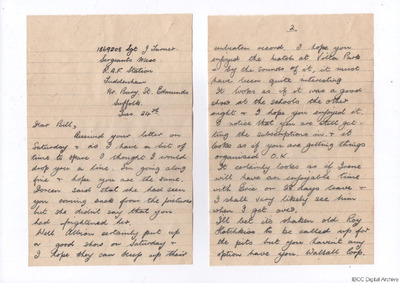 1869208 Sgt J Turner
Sergeants Mess
R.A.F. Station
Tuddenham
Nr Bury St. Edmunds
Suffolk.
24th
Dear Bill,
Received your letter on
Saturday & as I have a bit of
time to spare I thought I would
drop you a line. Im going along
fine & hope you are the same.
Doreen said that she had seen
you coming back from the pictures
but she didn't say that you
had frightened her.
Well Albion certainly put up
a good show on Saturday &
I hope they can keep up their
2.
unbeaten record. I hope you
enjoyed the match at Villa Park
& by the sounds of it, it must
have been quite interesting
It looks as if it was a good
show at the schools the other
night & I hope you enjoyed it.
I notice that you are still get-
ting the subscriptions in & it
looks as if you are getting things
organised O.K.
It certainly looks as if
will have an enjoyable time
with Evie on 28 days leave &
I shall very likely see him
when I get over.
I'll bet its shaken old Roy
Hotchkiss to be called up for
the pits but you havent any
option have you. Walsall Coop.
©IBCC Digital Archive